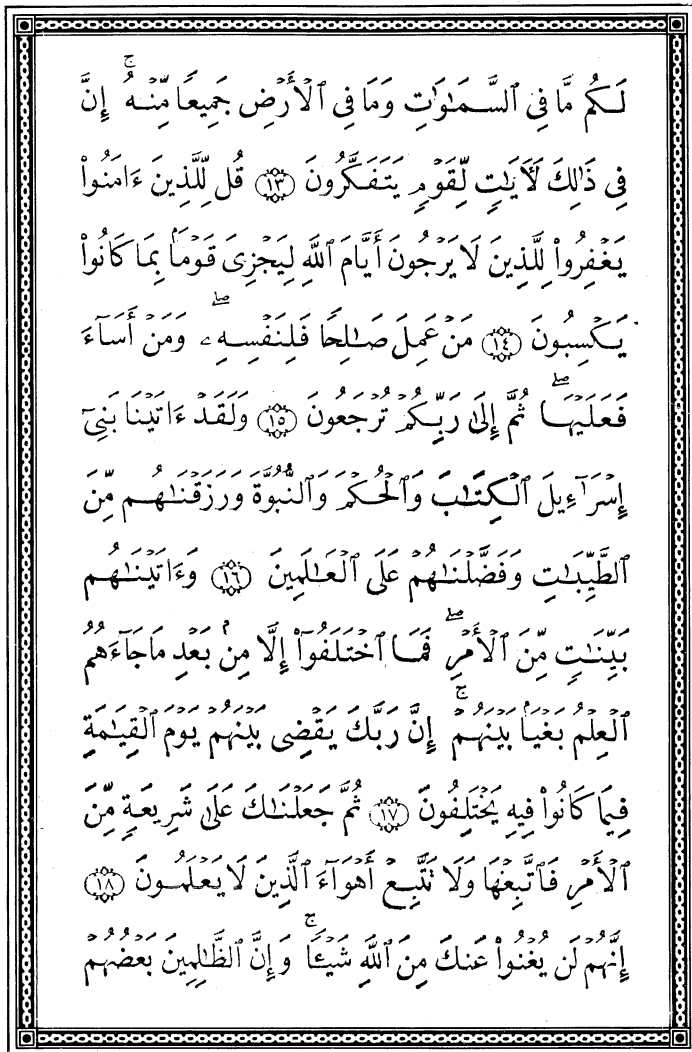 لَكُم مَّا فِى ٱلسَّمَـٰوَٰتِ وَمَا فِى ٱلْأَرْضِ جَمِيعًا مِّنْهُ ۚ إِنَّ
فِى ذَٰلِكَ لَـَٔايَـٰتٍ لِّقَوْمٍ يَتَفَكَّرُونَ ۝١٣ قُل لِّلَّذِينَ ءَامَنُوا۟
يَغْفِرُوا۟ لِلَّذِينَ لَا يَرْجُونَ أَيَّامَ ٱللَّهِ لِيَجْزِىَ قَوْمًۢا بِمَا كَانُوا۟
يَكْسِبُونَ ۝١٤ مَنْ عَمِلَ صَـٰلِحًا فَلِنَفْسِهِۦ ۖ وَمَنْ أَسَآءَ
فَعَلَيْهَا ۖ ثُمَّ إِلَىٰ رَبِّكُمْ تُرْجَعُونَ ۝١٥ وَلَقَدْ ءَاتَيْنَا بَنِىٓ
إِسْرَٰٓءِيلَ ٱلْكِتَـٰبَ وَٱلْحُكْمَ وَٱلنُّبُوَّةَ وَرَزَقْنَـٰهُم مِّنَ
ٱلطَّيِّبَـٰتِ وَفَضَّلْنَـٰهُمْ عَلَى ٱلْعَـٰلَمِينَ ۝١٦ وَءَاتَيْنَـٰهُم
بَيِّنَـٰتٍ مِّنَ ٱلْأَمْرِ ۖ فَمَا ٱخْتَلَفُوٓا۟ إِلَّا مِنۢ بَعْدِ مَا جَآءَهُمُ
ٱلْعِلْمُ بَغْيًۢا بَيْنَهُمْ ۚ إِنَّ رَبَّكَ يَقْضِى بَيْنَهُمْ يَوْمَ ٱلْقِيَـٰمَةِ
فِيمَا كَانُوا۟ فِيهِ يَخْتَلِفُونَ ۝١٧ ثُمَّ جَعَلْنَـٰكَ عَلَىٰ شَرِيعَةٍ مِّنَ
ٱلْأَمْرِ فَٱتَّبِعْهَا وَلَا تَتَّبِعْ أَهْوَآءَ ٱلَّذِينَ لَا يَعْلَمُونَ ۝١٨
إِنَّهُمْ لَن يُغْنُوا۟ عَنكَ مِنَ ٱللَّهِ شَيْـًٔا ۚ وَإِنَّ ٱلظَّـٰلِمِينَ بَعْضُهُمْ